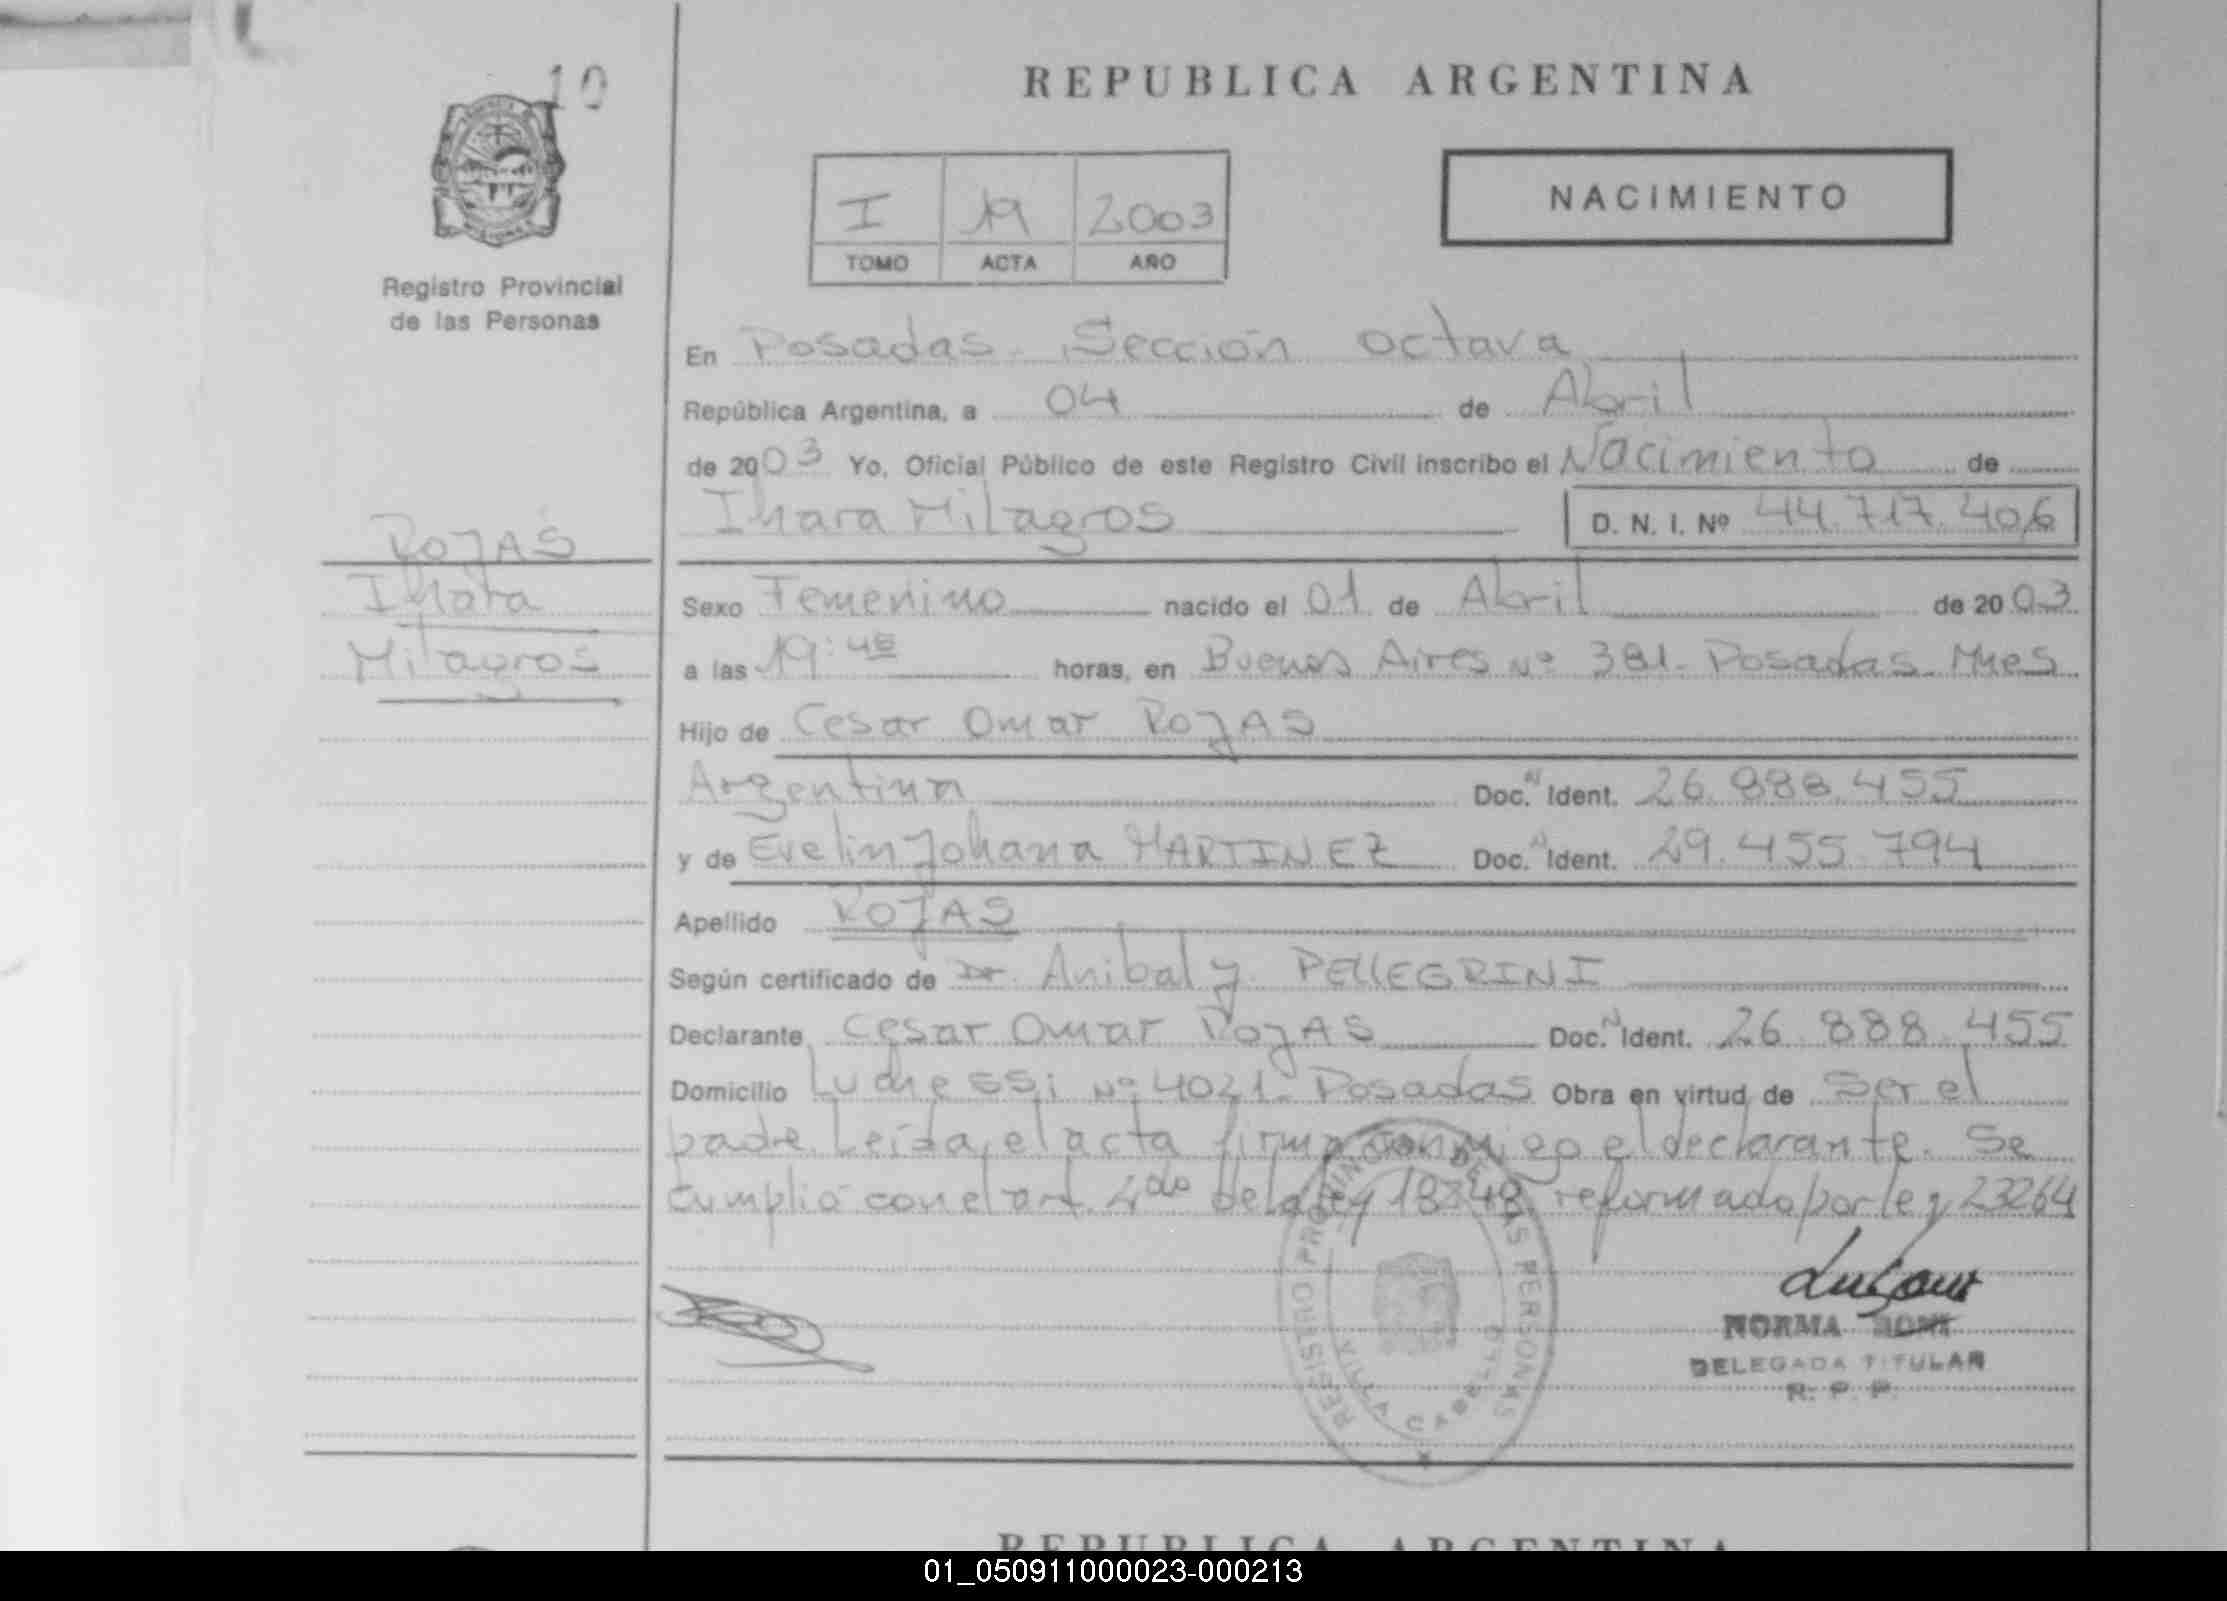 10
REPUBLICA ARGENTINA
I 19 2003
TOMO ACTA AÑO
NACIMIENTO
Registro Provincial
de las Personas
En Posadas - Sección octava
República Argentina, a 04 de Abril
de 2003 Yo, Oficial Público de este Registro Civil inscribo el Nacimiento de
Ihara Milagros D. N. I. Nº 44.717.406
ROJAS
Ihara
Milagros
Sexo Femenino nacido el 01 de Abril de 2003
a las 19:45 horas, en Buenos Aires Nº 381 - Posadas - Mnes
Hijo de Cesar Omar ROJAS
Argentina Doc. N Ident. 26.888.455
y de Evelin Johana MARTINEZ Doc. N Ident. 29.455.794
Apellido ROJAS
Según certificado de Dr. Anibal J. PELLEGRINI
Declarante Cesar Omar ROJAS Doc. N Ident. 26.888.455
Domicilio Luchessi Nº 4021 - Posadas Obra en virtud de Ser el
padre. Leída el acta firma conmigo el declarante. Se
cumplió con el art. 2do de la ley 18248 reformado por ley 23264
REGISTRO PROVINCIAL DE LAS PERSONAS
VILLA CABELLO
NORMA BONI
DELEGADA TITULAR
R. P. P.
REPUBLICA ARGENTINA
01_050911000023-000213